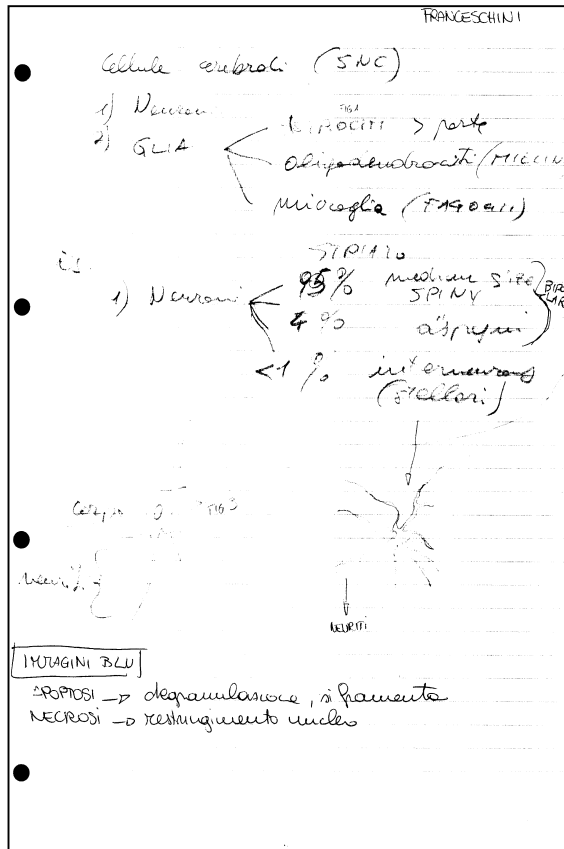 FRANCESCHINI
Cellule cerebrali (SNC)
1) Neuroni
FIG1
2) GLIA
> parte
oligodendrociti (MIELIN
microglia (FAGOCITI)
STRIATO
es.
1) Neuroni
95% medium size
SPINY
BIPO
LARI
4%
<1% interneurons
(stellari)
FIG3
NEURITI
IMMAGINI BLU
APOPTOSI → degranulazione, si framenta
NECROSI → restringimento nucleo